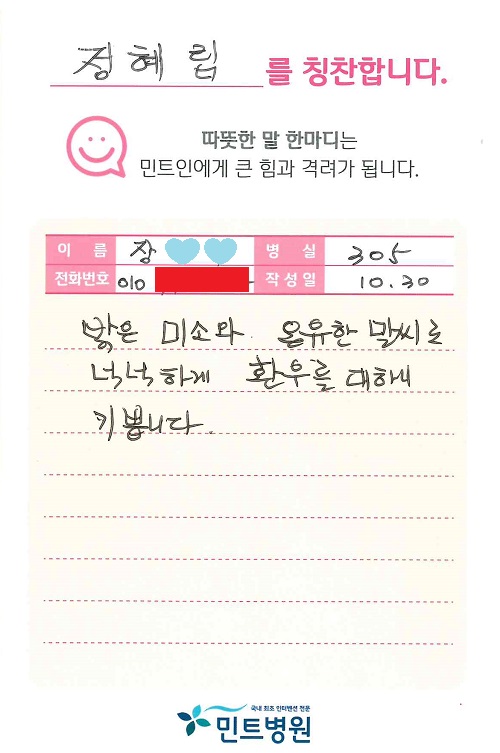 정혜림 를 칭찬합니다.
따뜻한 말 한마디는
민트인에게 큰 힘과 격려가 됩니다.
이 름 장 병 실 305
전화번호 010 작성일 10.30
밝은 미소와 온유한 말씨로
넉넉하게 환우를 대하니
기쁩니다.
국내 최초 인터벤션 전문
민트병원